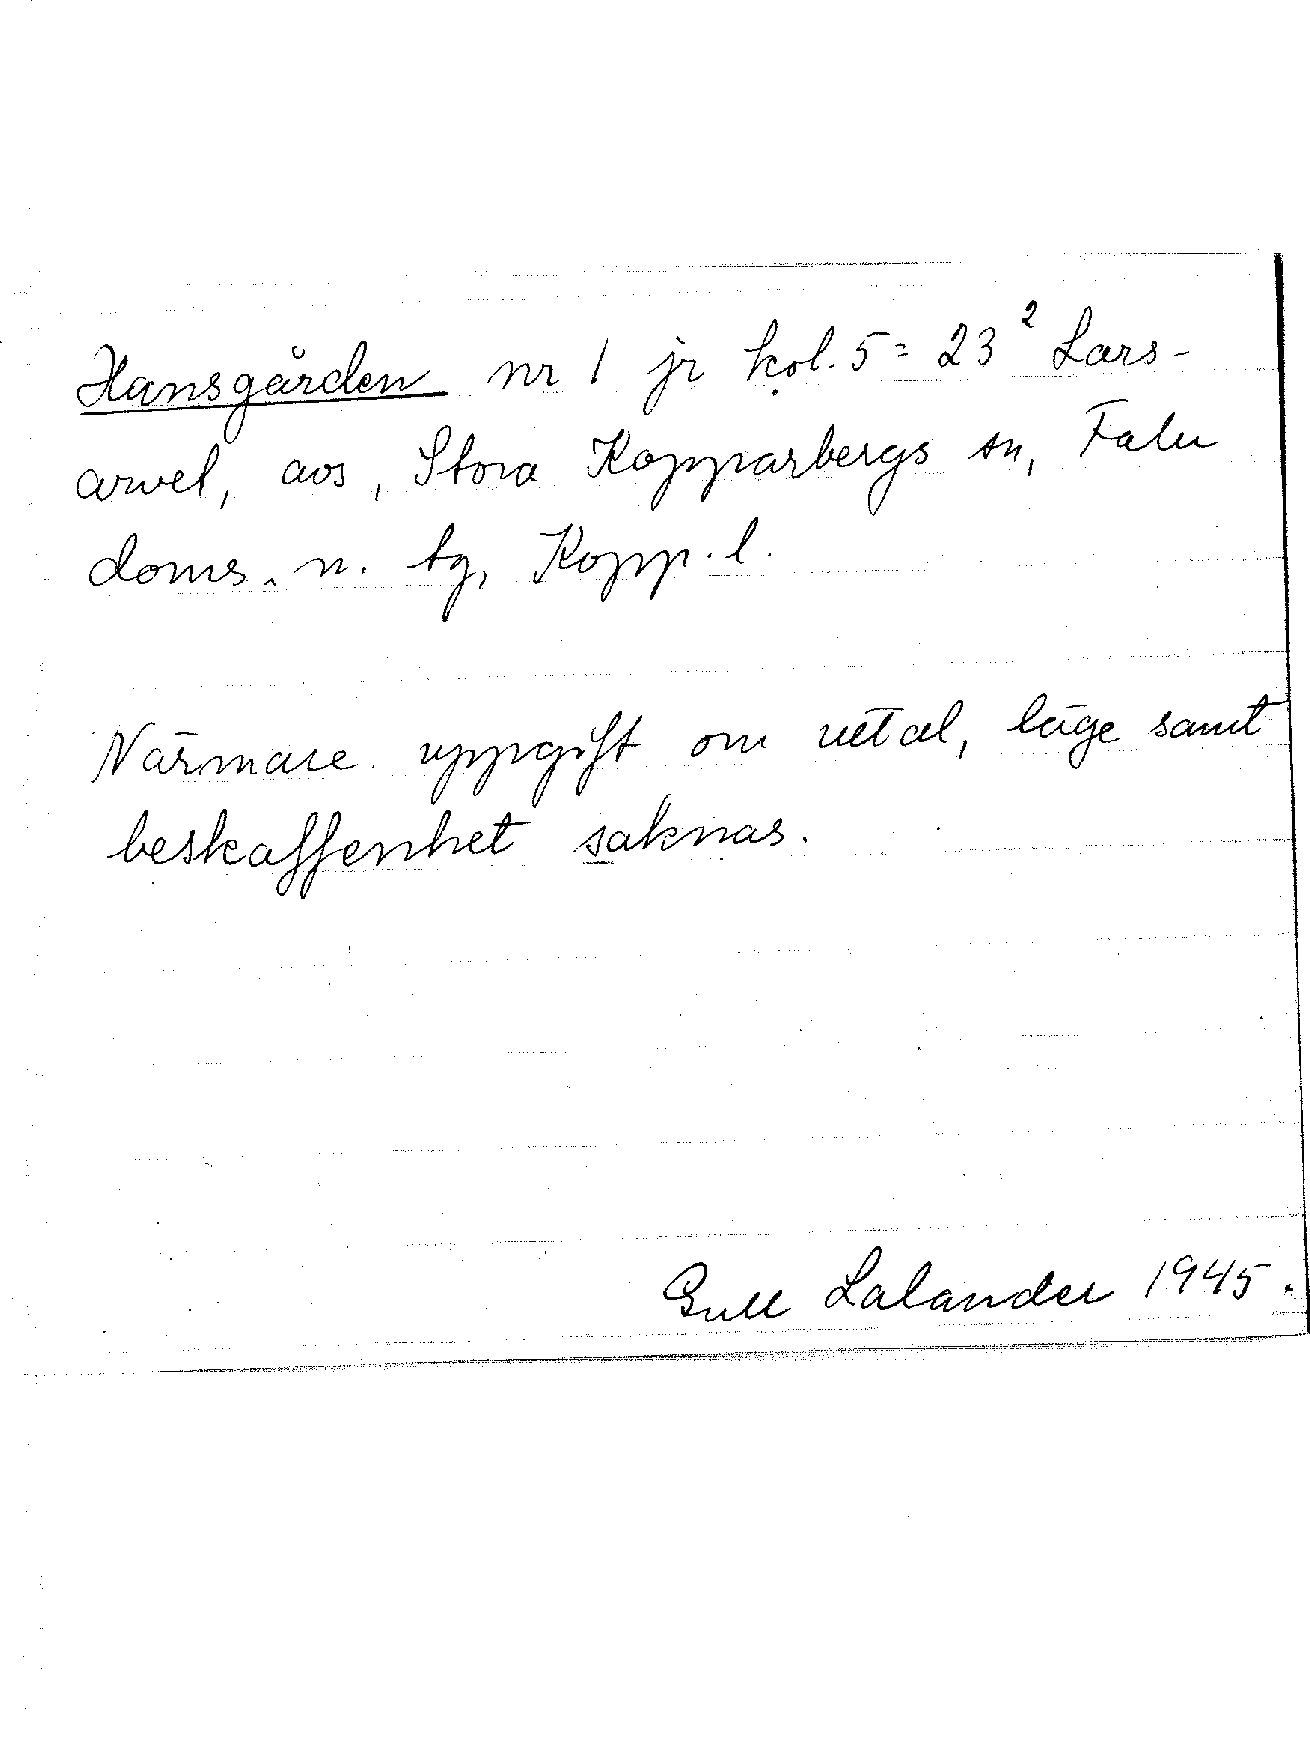 Hansgården nr 1 jr kol. 5 = 23² Lars-
arvet, avs, Stora Kopparbergs sn, Falu
doms. n. tg, Kopp. l.
Närmare uppgift om uttal, läge samt
beskaffenhet saknas.
Gull Lalander 1945.